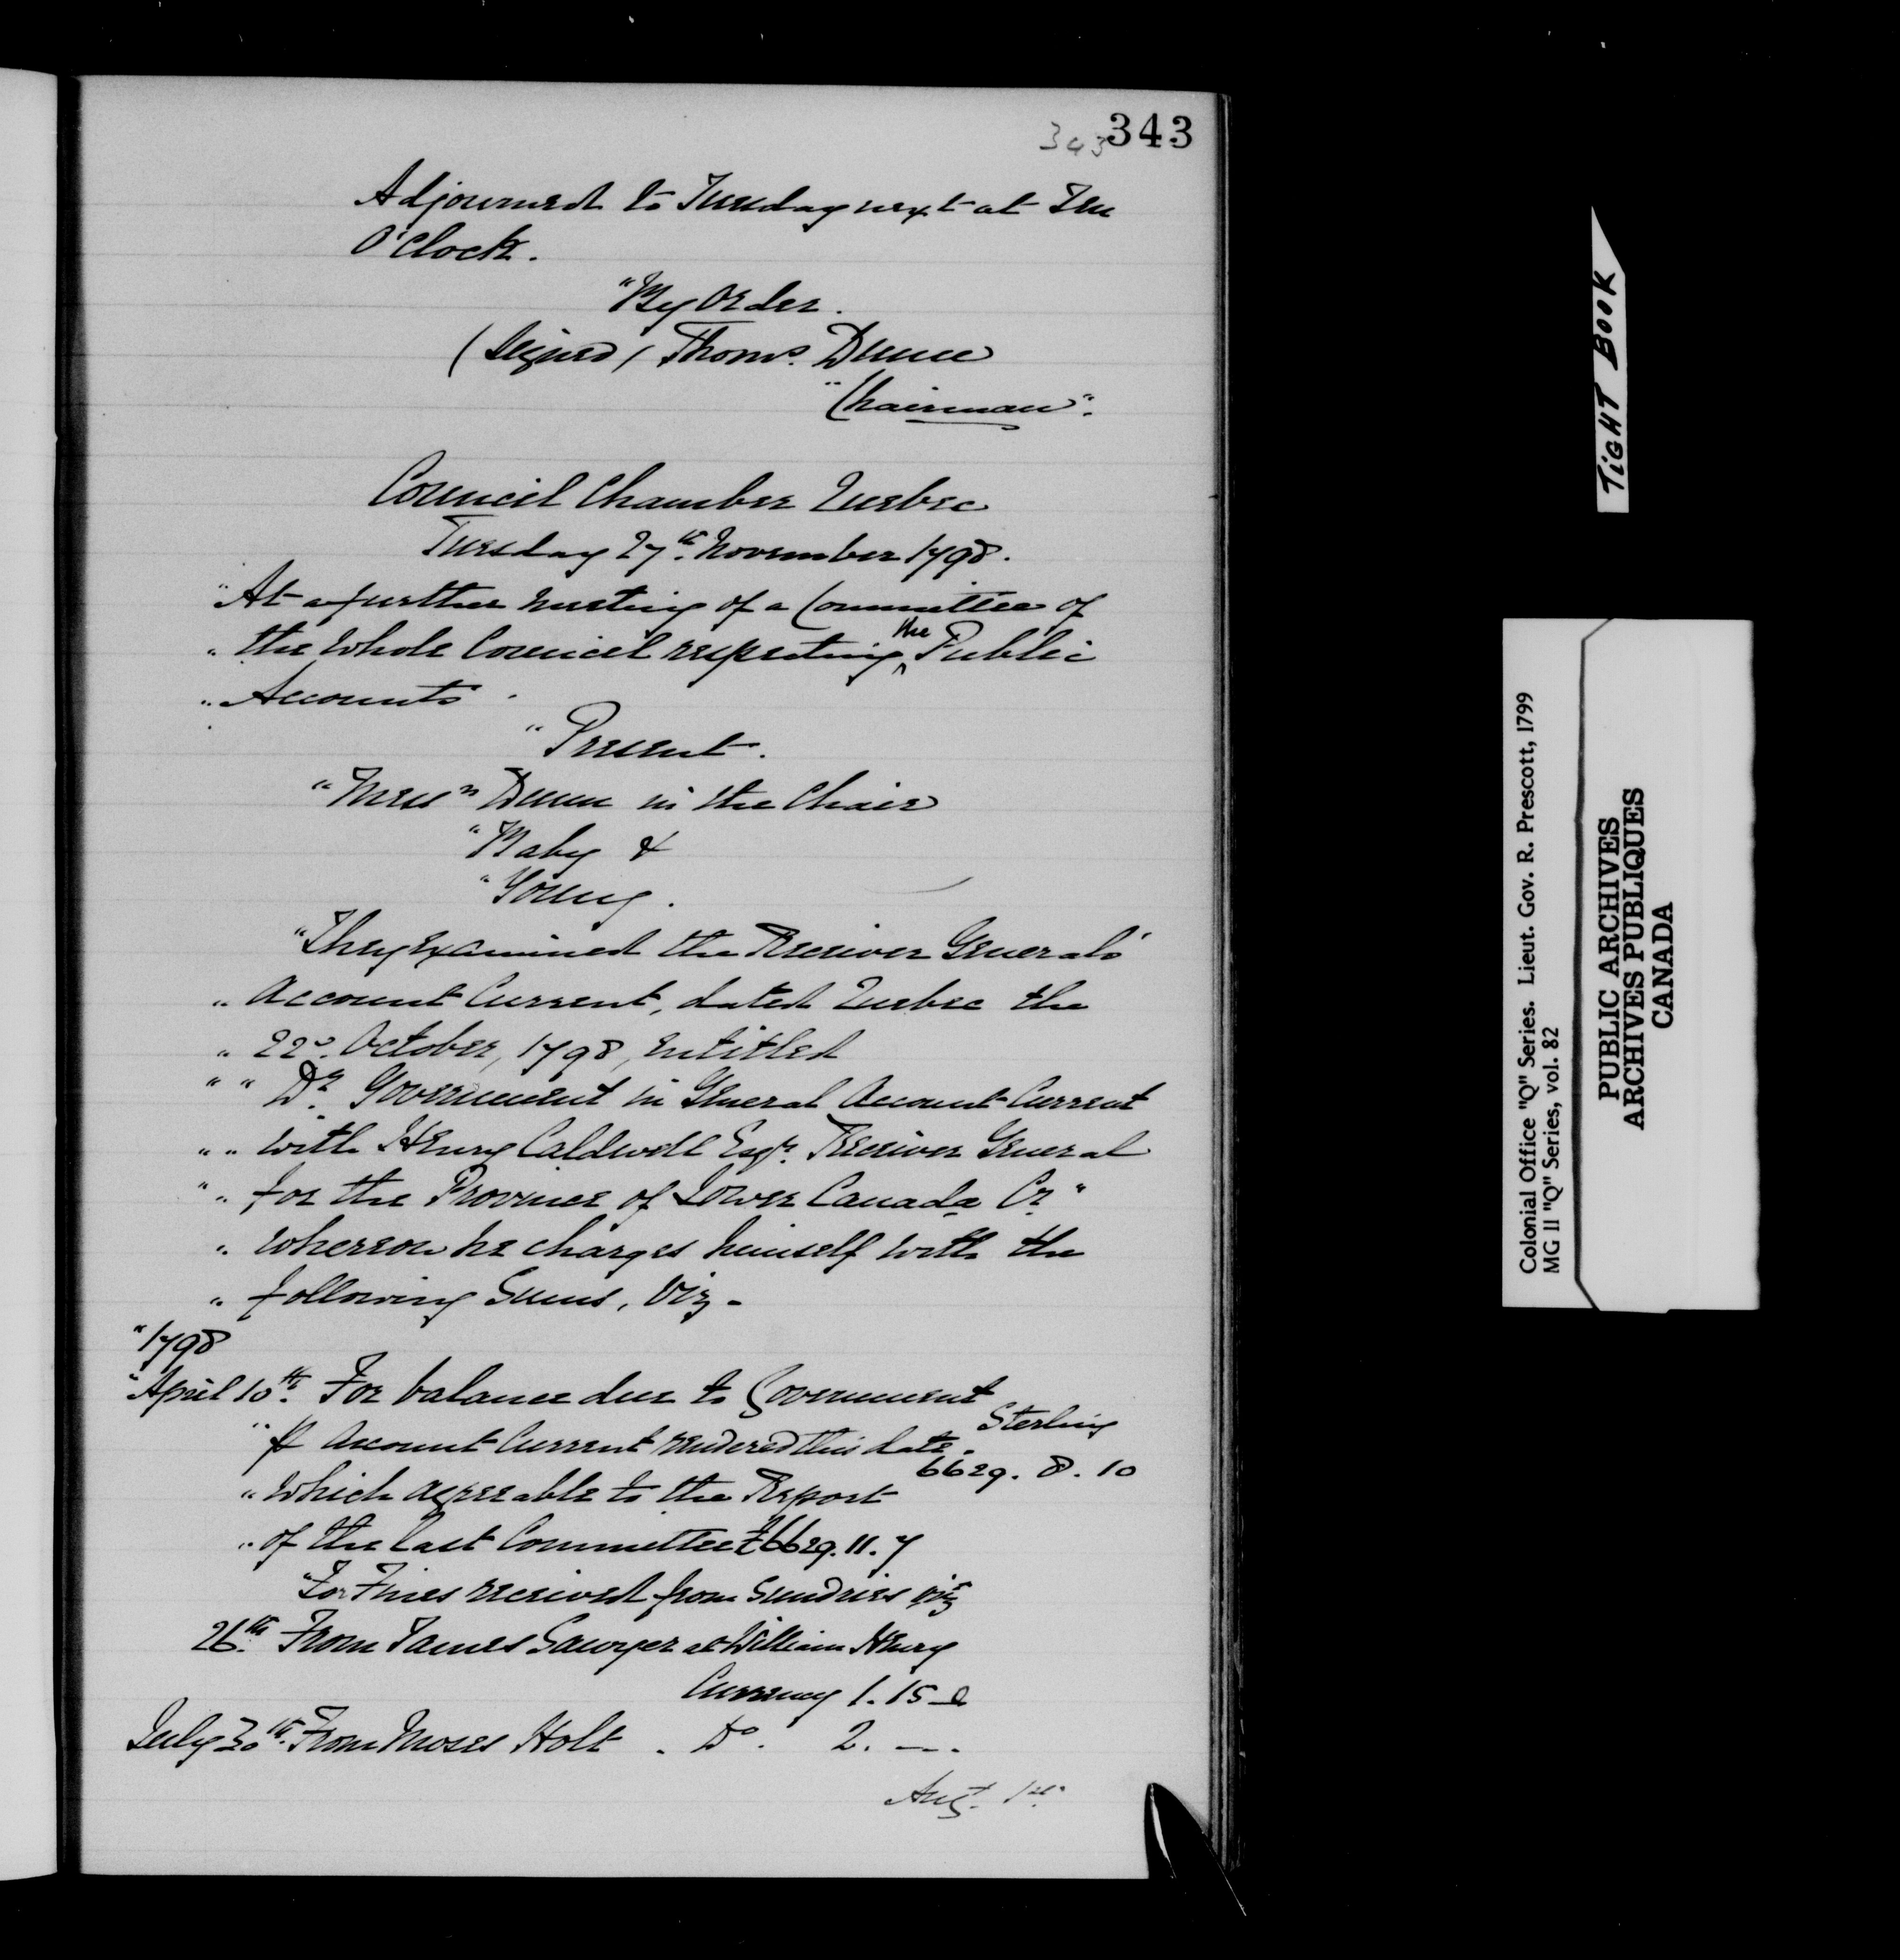 343
343
Adjourned to Tuesday next at Ten
O'Clock.
"By Order.
(Signed) Thoms. Dunn
"Chairman".
Council Chamber Quebec
Tuesday 27th. November 1798.
"At a further meeting of a Committee of
" the Whole Council respecting the Public
" Accounts.
"Present.
"Messrs Dunn in the Chair
"Baby &
"Young.
"They examined the Receiver General's
" Account Current, dated Quebec the
" 22d. October, 1798, entitled
" " Dr. Government in General Account Current
" " with Henry Caldwell Esqr. Receiver General
" " for the Province of Lower Canada Cr"
" whereon he charges himself with the
" following Sums, Viz-
"1798
"April 10th. For balance due to Government
Sterling
" pr Account Current rendered this date.
6629. 8. 10
" which agreeable to the Report
" of the last Committee £6629. 11. 7
"For Fines received from Sundries viz
26th. From James Sawyer at William Henry
Currency 1. 15
July 30th. From Moses Holt . Do. 2. —.
Augt. 1st.
TIGHT BOOK
Colonial Office "Q" Series. Lieut. Gov. R. Prescott, 1799
MG 11 "Q" Series, vol. 82
PUBLIC ARCHIVES
ARCHIVES PUBLIQUES
CANADA